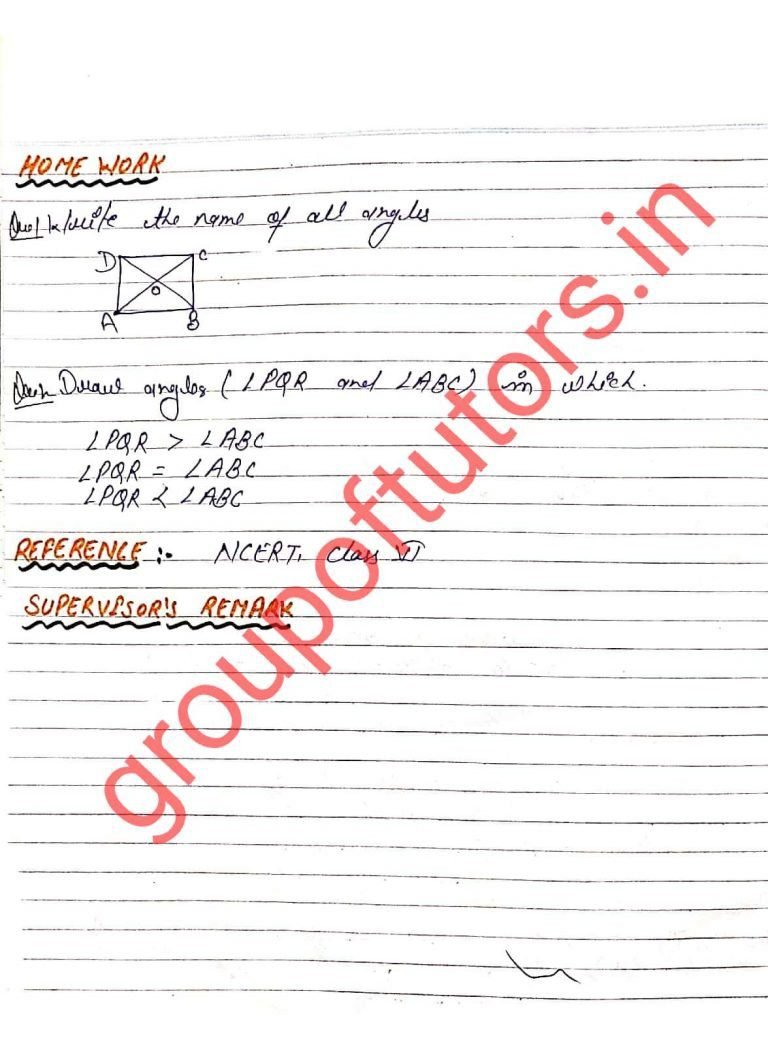 HOME WORK
Que1 Write the name of all angles
D C
O
A B
Draw angles (∠PQR and ∠ABC) in which.
∠PQR > ∠ABC
∠PQR = ∠ABC
∠PQR < ∠ABC
REFERENCE :- NCERT, Class VI
SUPERVISOR'S REMARK
groupoftutors.in